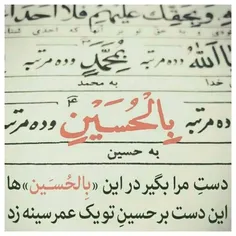 وَبِحَقِّكَ عَلَيْهِمْ فَلا اَحَدَ
ده مرتبه بِمُحَمَّدٍ وده مرتبه
خدا به محمد
مرتبه بِالْحُسَيْنِ وده مرتبه
به حسین
دستِ مرا بگیر در این «بِالحُسَـین» ها
این دست بر حسینِ تو یک عمر سینه زد